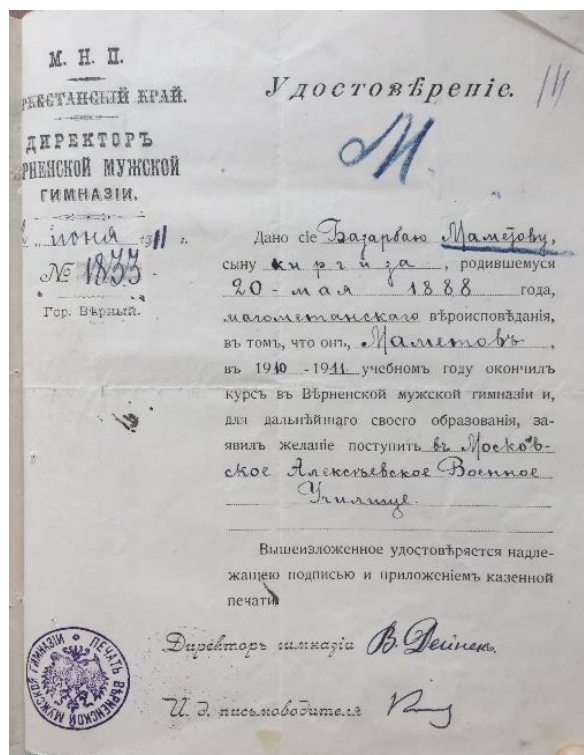 М. Н. П.
РКЕСТАНСКІЙ КРАЙ.
ДИРЕКТОРЪ
РНЕНСКОЙ МУЖСКОЙ
ГИМНАЗІИ.
іюня 1911 г.
№ 1833
Гор. Вѣрный.
Удостовѣреніе.
М.
Дано сіе Базарбаю Маметову,
сыну киргиза, родившемуся
20 - мая 1888 года,
магометанскаго вѣроисповѣданія,
въ томъ, что онъ, Маметовъ,
въ 1910 - 1911 учебномъ году окончилъ
курсъ въ Вѣрненской мужской гимназіи и,
для дальнѣйшаго своего образованія, за-
явилъ желаніе поступить въ Москов-
ское Алексѣевское Военное
Училище.
Вышеизложенное удостовѣряется надле-
жащею подписью и приложеніемъ казенной
печати
Директоръ гимназіи В. Дейнек
И. д. письмоводителя
ПЕЧАТЬ ВѢРНЕНСКОЙ МУЖСКОЙ ГИМНАЗІИ